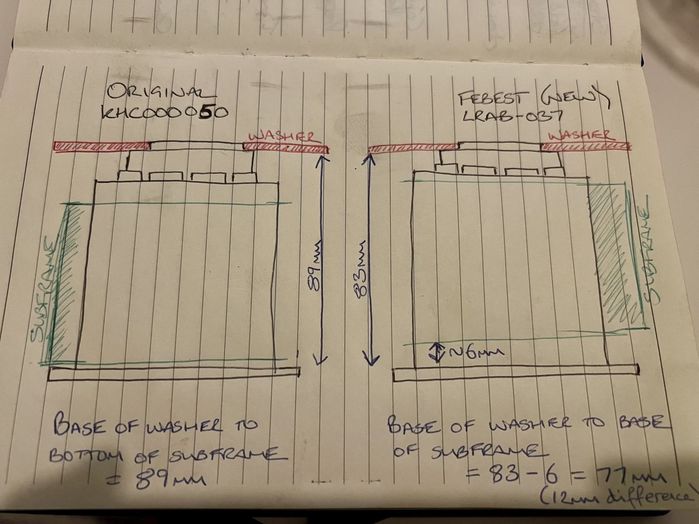 ORIGINAL
KHC000050
WASHER
SUBFRAME
89mm
BASE OF WASHER TO
BOTTOM OF SUBFRAME
= 89mm
FEBEST (NEW)
LRAB-037
WASHER
SUBFRAME
83mm
~6mm
BASE OF WASHER TO BASE
OF SUBFRAME
= 83-6 = 77mm
(12mm difference)